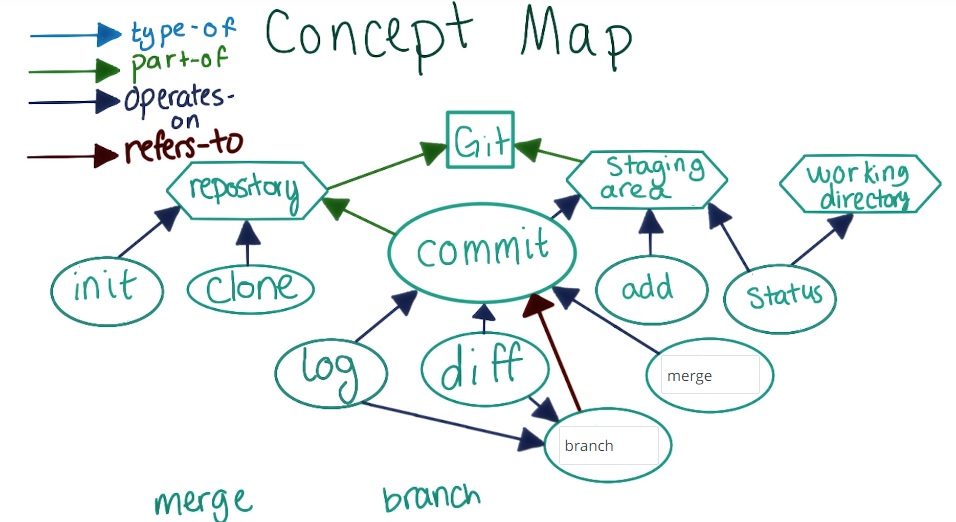 type-of
part-of
operates-
on
refers-to
Concept Map
Git
repository
Staging
area
working
directory
commit
init
clone
add
Status
log
diff
merge
branch
merge
branch